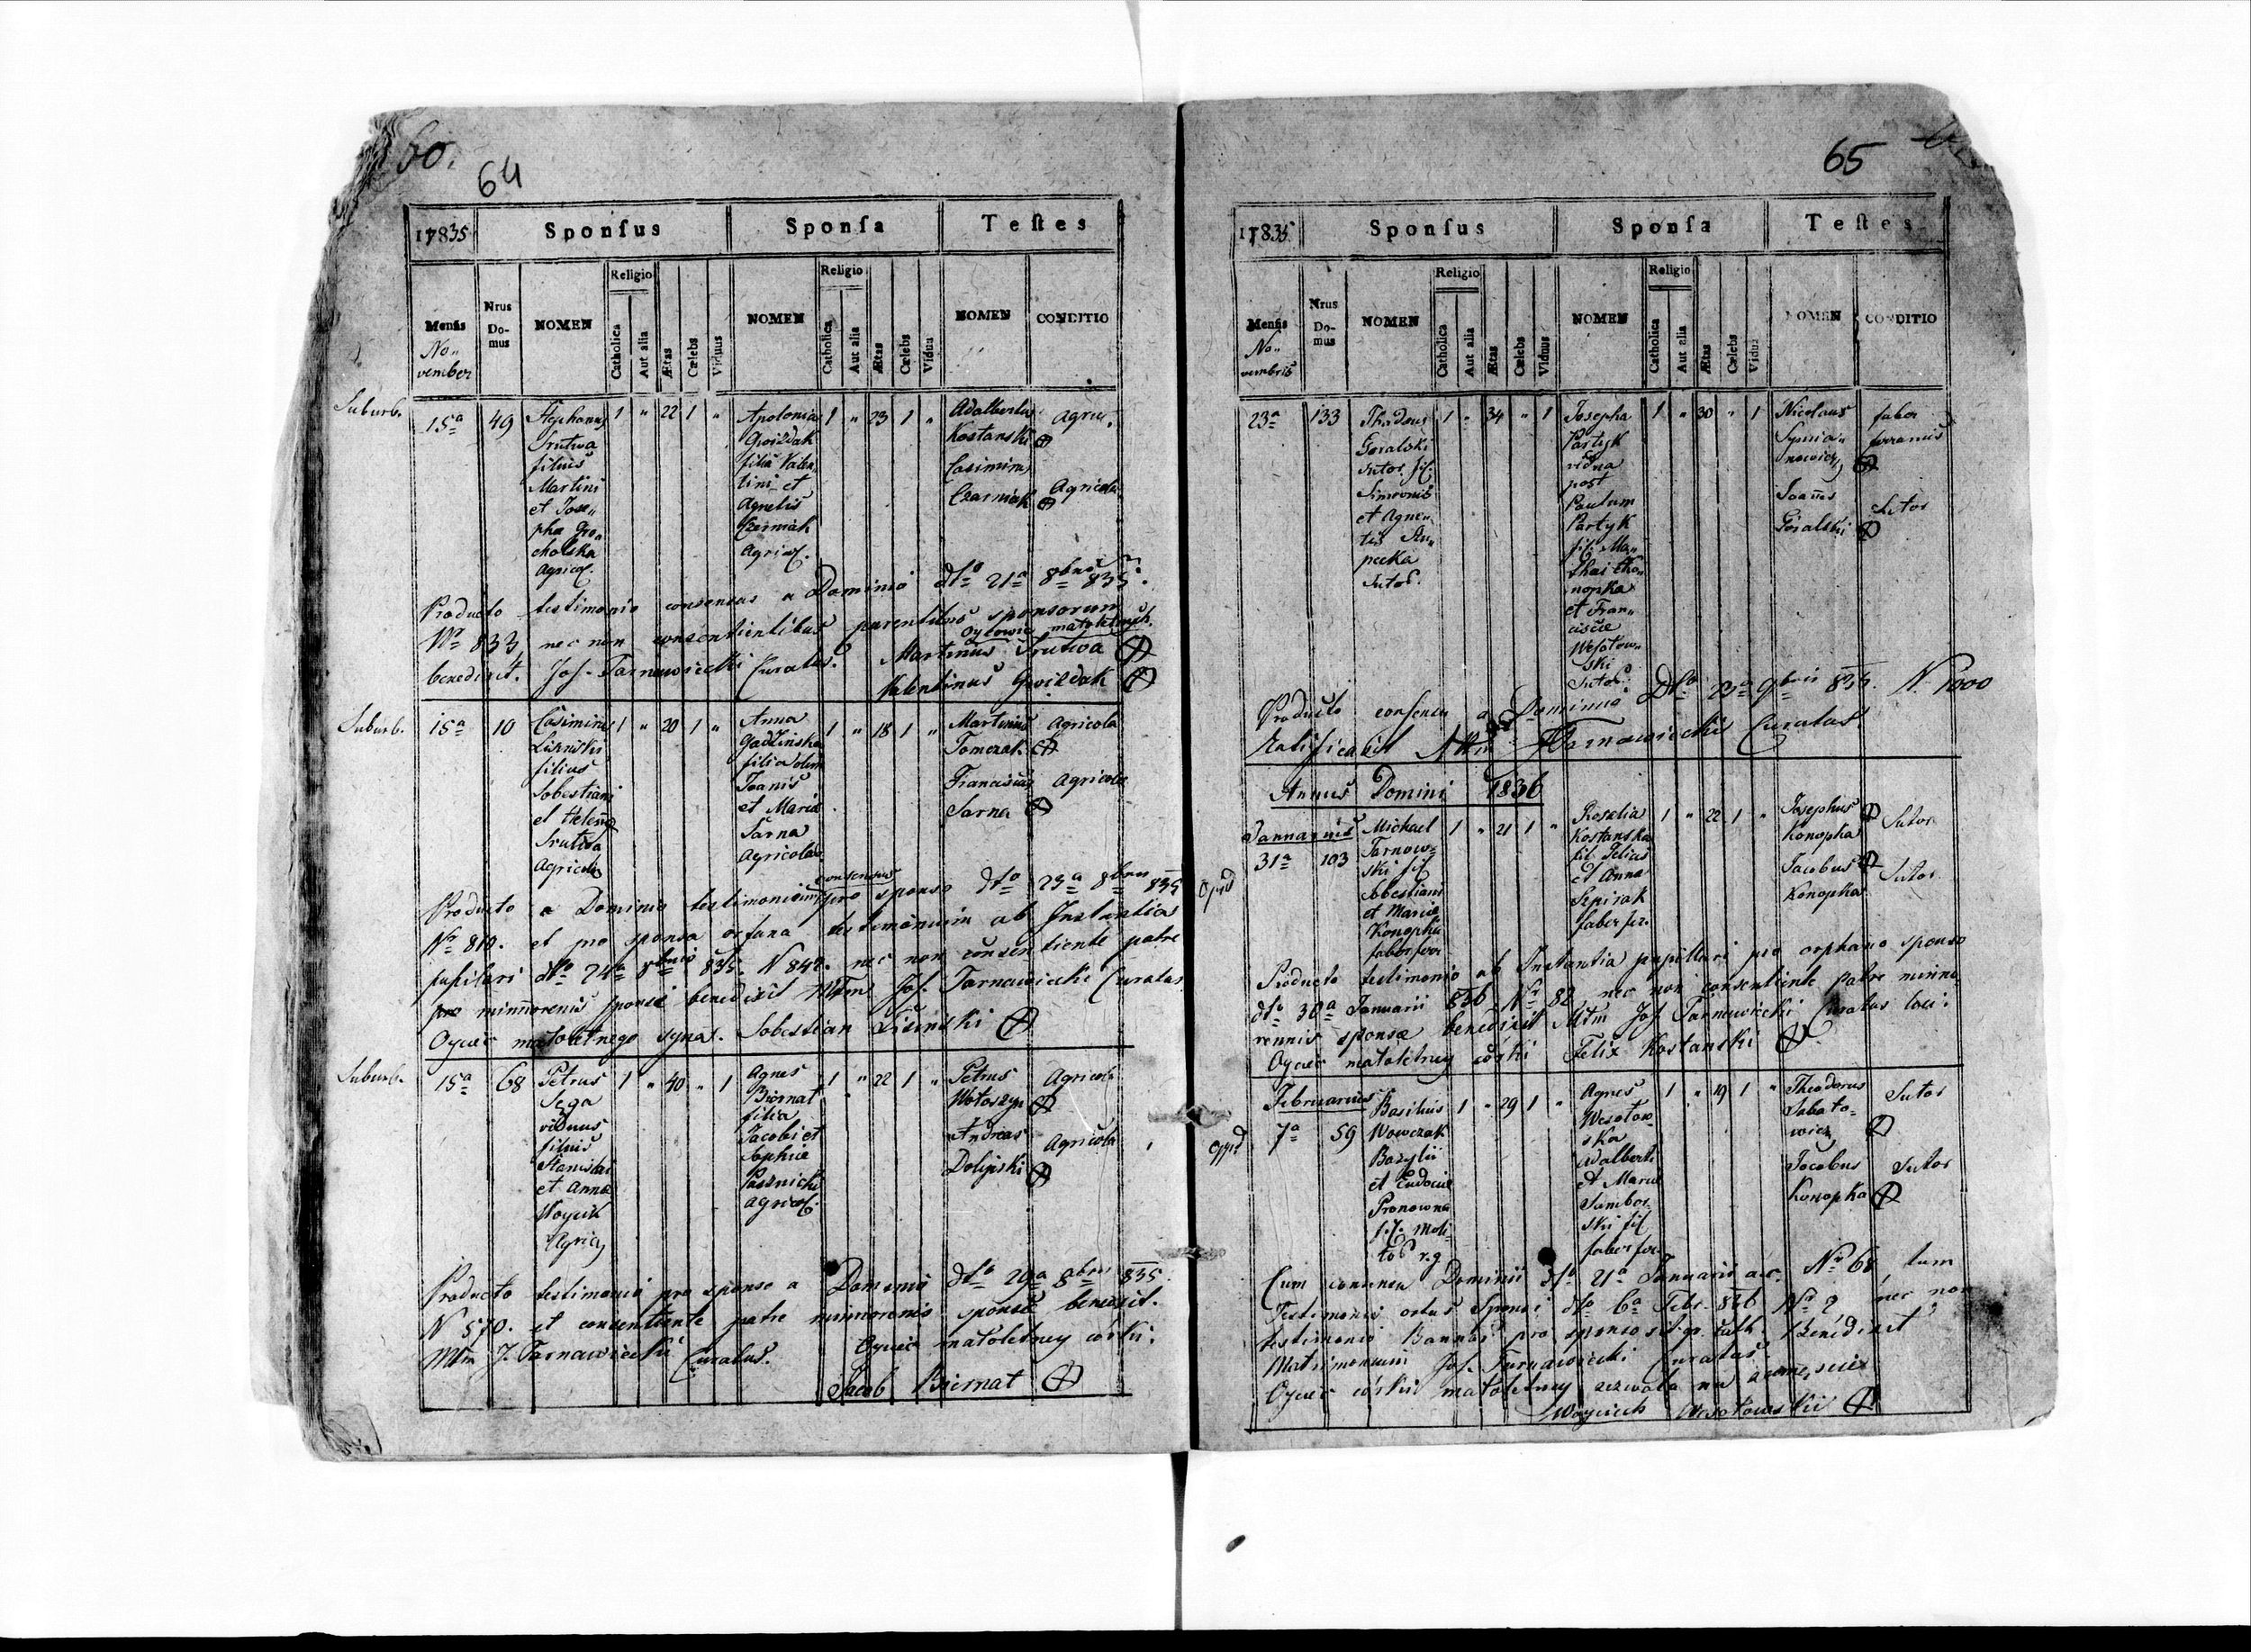 60.
64
17835
Sponsus
Sponsa
Testes
Mensis
No„
vember
Nrus
Do-
mus
NOMEN
Religio
Catholica
Aut alia
Ætas
Cælebs
Viduus
NOMEN
Religio
Catholica
Aut alia
Ætas
Cælebs
Vidua
NOMEN
CONDITIO
Suburb.
15a
49
Stephanus
Srutwa
filius
Martini
et Jose„
pha Gro„
cholska
agricol.
1 „ 22 1 „
Apolonia
Gwizdak
filia Valen
tini et
Agnetis
Czerniak
agricol.
1 „ 23 1 „
Adalbertus
Kostanski
Casimirus
Czarniak
Agric.
Agricola
Producto testimonio consensus a Dominio dto 21a 8bris 835.
Nr 833, nec non consentientibus parentibus sponsorum
benedixit. Jos. Tarnawiecki Curatus.
Oycowie małoletnych.
Martinus Srutwa
Valentinus Gwizdak
Suburb.
15a
10
Casimirus
Lizinski
filius
Sobestiani
et Helena
Srutwa
Agricola
1 „ 20 1 „
Anna
Gadzinska
filia olim
Joanis
et Maria
Sarna
Agricola
1 „ 18 1 „
Martinus
Tomczak
Franciscus
Sarna
Agricola
Agricola
Producto a Dominio testimonium consensus pro sponso dto 23a 8bris 835
Nr 810. et pro sponsa orfana testimonium ab Instantia
pupilari dto 24a 8bris 835. N 842. nec non consentiente patre
pro minnorenis sponsi benedixit Mtm Jos. Tarnawiecki Curatus
Oyciec małoletnego syna. Sobestian Lizinski
Suburb.
15a
68
Petrus
Sega
viduus
filius
Stanislai
et Anna
Woycik
Agric,
1 „ 40 „ 1
Agnes
Biernat
filia
Jacobi et
Sophia
Pasznicki
agricol.
1 „ 22 1 „
Petrus
Wołoszyn
Andreas
Dolipski
Agricola
Agricola
Producto testimonio pro sponso a Dominio dto 29a 8bris 835.
N 570. et consentiente patre minnorenis sponsa benedixit.
Mtm J. Tarnawiecki Curatus.
Oyciec małoletney córki.
Jacob Biernat
65
17835.
Sponsus
Sponsa
Testes
Mensis
No„
vembris
Nrus
Do-
mus
NOMEN
Religio
Catholica
Aut alia
Ætas
Cælebs
Viduus
NOMEN
Religio
Catholica
Aut alia
Ætas
Cælebs
Vidua
NOMEN
CONDITIO
23a
133
Thadeus
Goralski
Sutor. fil.
Simeonis
et Agne„
tis
Sutor.
1 „ 34 „ 1
Josepha
Partyk
vidua
post
Paulum
Partyk
fil. Ma„
thai Ko„
nopka
et Fran„
cisce
Wesołow„
ski
Sutor.
1 „ 30 „ 1
Nicolaus
Joannes
Góralski
faber
ferrarius
Sutor
Producto consensu a Dominio Dto 23a 9bris 835. N. 1000
Ratificavit Mtm Tarnawiecki Curatus
Annus Domini 1836
Oppid
Januarius
31a
103
Michael
Tarnow-
ski fil
Sobestiani
et Maria
Konopka
faber ferr
1 „ 21 1 „
Rosalia
Kostanska
fil Felicis
et Anna
Szpirak
faber fer.
1 „ 22 1 „
Josephus
Konopka
Jacobus
Konopka
Sutor
Sutor
Producto testimonio ab Instantia pupillari pro orphano sponso
dto 30a Januarii 836 Nr 82 nec non consentiente patre minno„
rennis sponsa benedixit Mtm Jos Tarnawiecki Curatus loci.
Oyciec małoletney córki Felix Kostanski
Oppid
Februarius
7a
59
Basilius
Wowczak
Bazylii
et Eudocia
Pronowna
fil. Moli
tor r.g
1 „ 29 1 „
Agnes
Wesołow-
ska
Adalberti
et Maria
Sambor„
ski fil
faber fer
1 „ 19 1 „
Theodorus
Sabato-
wicz
Jacobus
Konopka
Sutor
Sutor
Cum consensu Dominii dto 21a Januarii a.c. Nr 68 tum
Testimonii ortus Sponsi dto 6a Febr. 836 Nr 2 nec non
testimonio Bannor. pro sponso rit. gr. cath. Benedixit
Matrimonium Jos. Tarnawiecki Curatus
Oyciec córki małoletney zezwala na zamęście
Woyciech Wesołowski